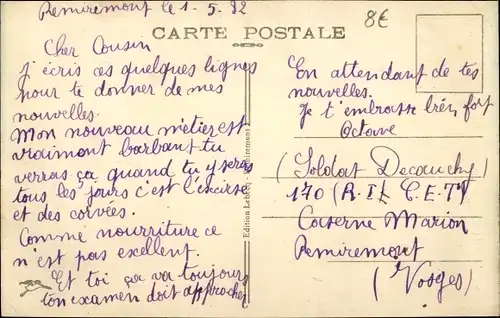 Remiremont le 1-5.32
8€
CARTE POSTALE
Cher Cousin
J'écris ces quelques lignes
pour te donner de mes
nouvelles.
Mon nouveau métier est
vraimont barbant tu
verras ça quand tu y seras
tous les jours c'est l'excercise
et des corvées.
Comme nourriture ce
n'est pas excellent.
Et toi ça va toujours
ton examen doit approcher
Edition Remiremont
En attendant de tes
nouvelles.
Je t'embrasse bién fort
Octave
(Soldat Decauchy
170 (R.I. C.E.T)
Caserne Marion
Remiremont
(Vosges)